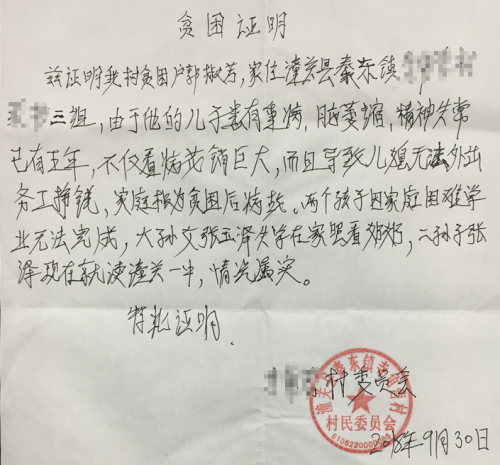 贫困证明
兹证明我村贫困户郭椒芳，家住潼关县秦东镇
三组，由于他的儿子患有重病，脑萎缩，精神失常
已有五年，不仅看病花销巨大，而且导致儿媳无法外出
务工挣钱，家庭极为贫困后病残。两个孩子因家庭困难学
业无法完成，大孙女张玉泽失学在家照看奶奶，二孙子张
泽现在就读潼关一中，情况属实。
特此证明
村委员会
秦东镇
村民委员会
2018年9月30日